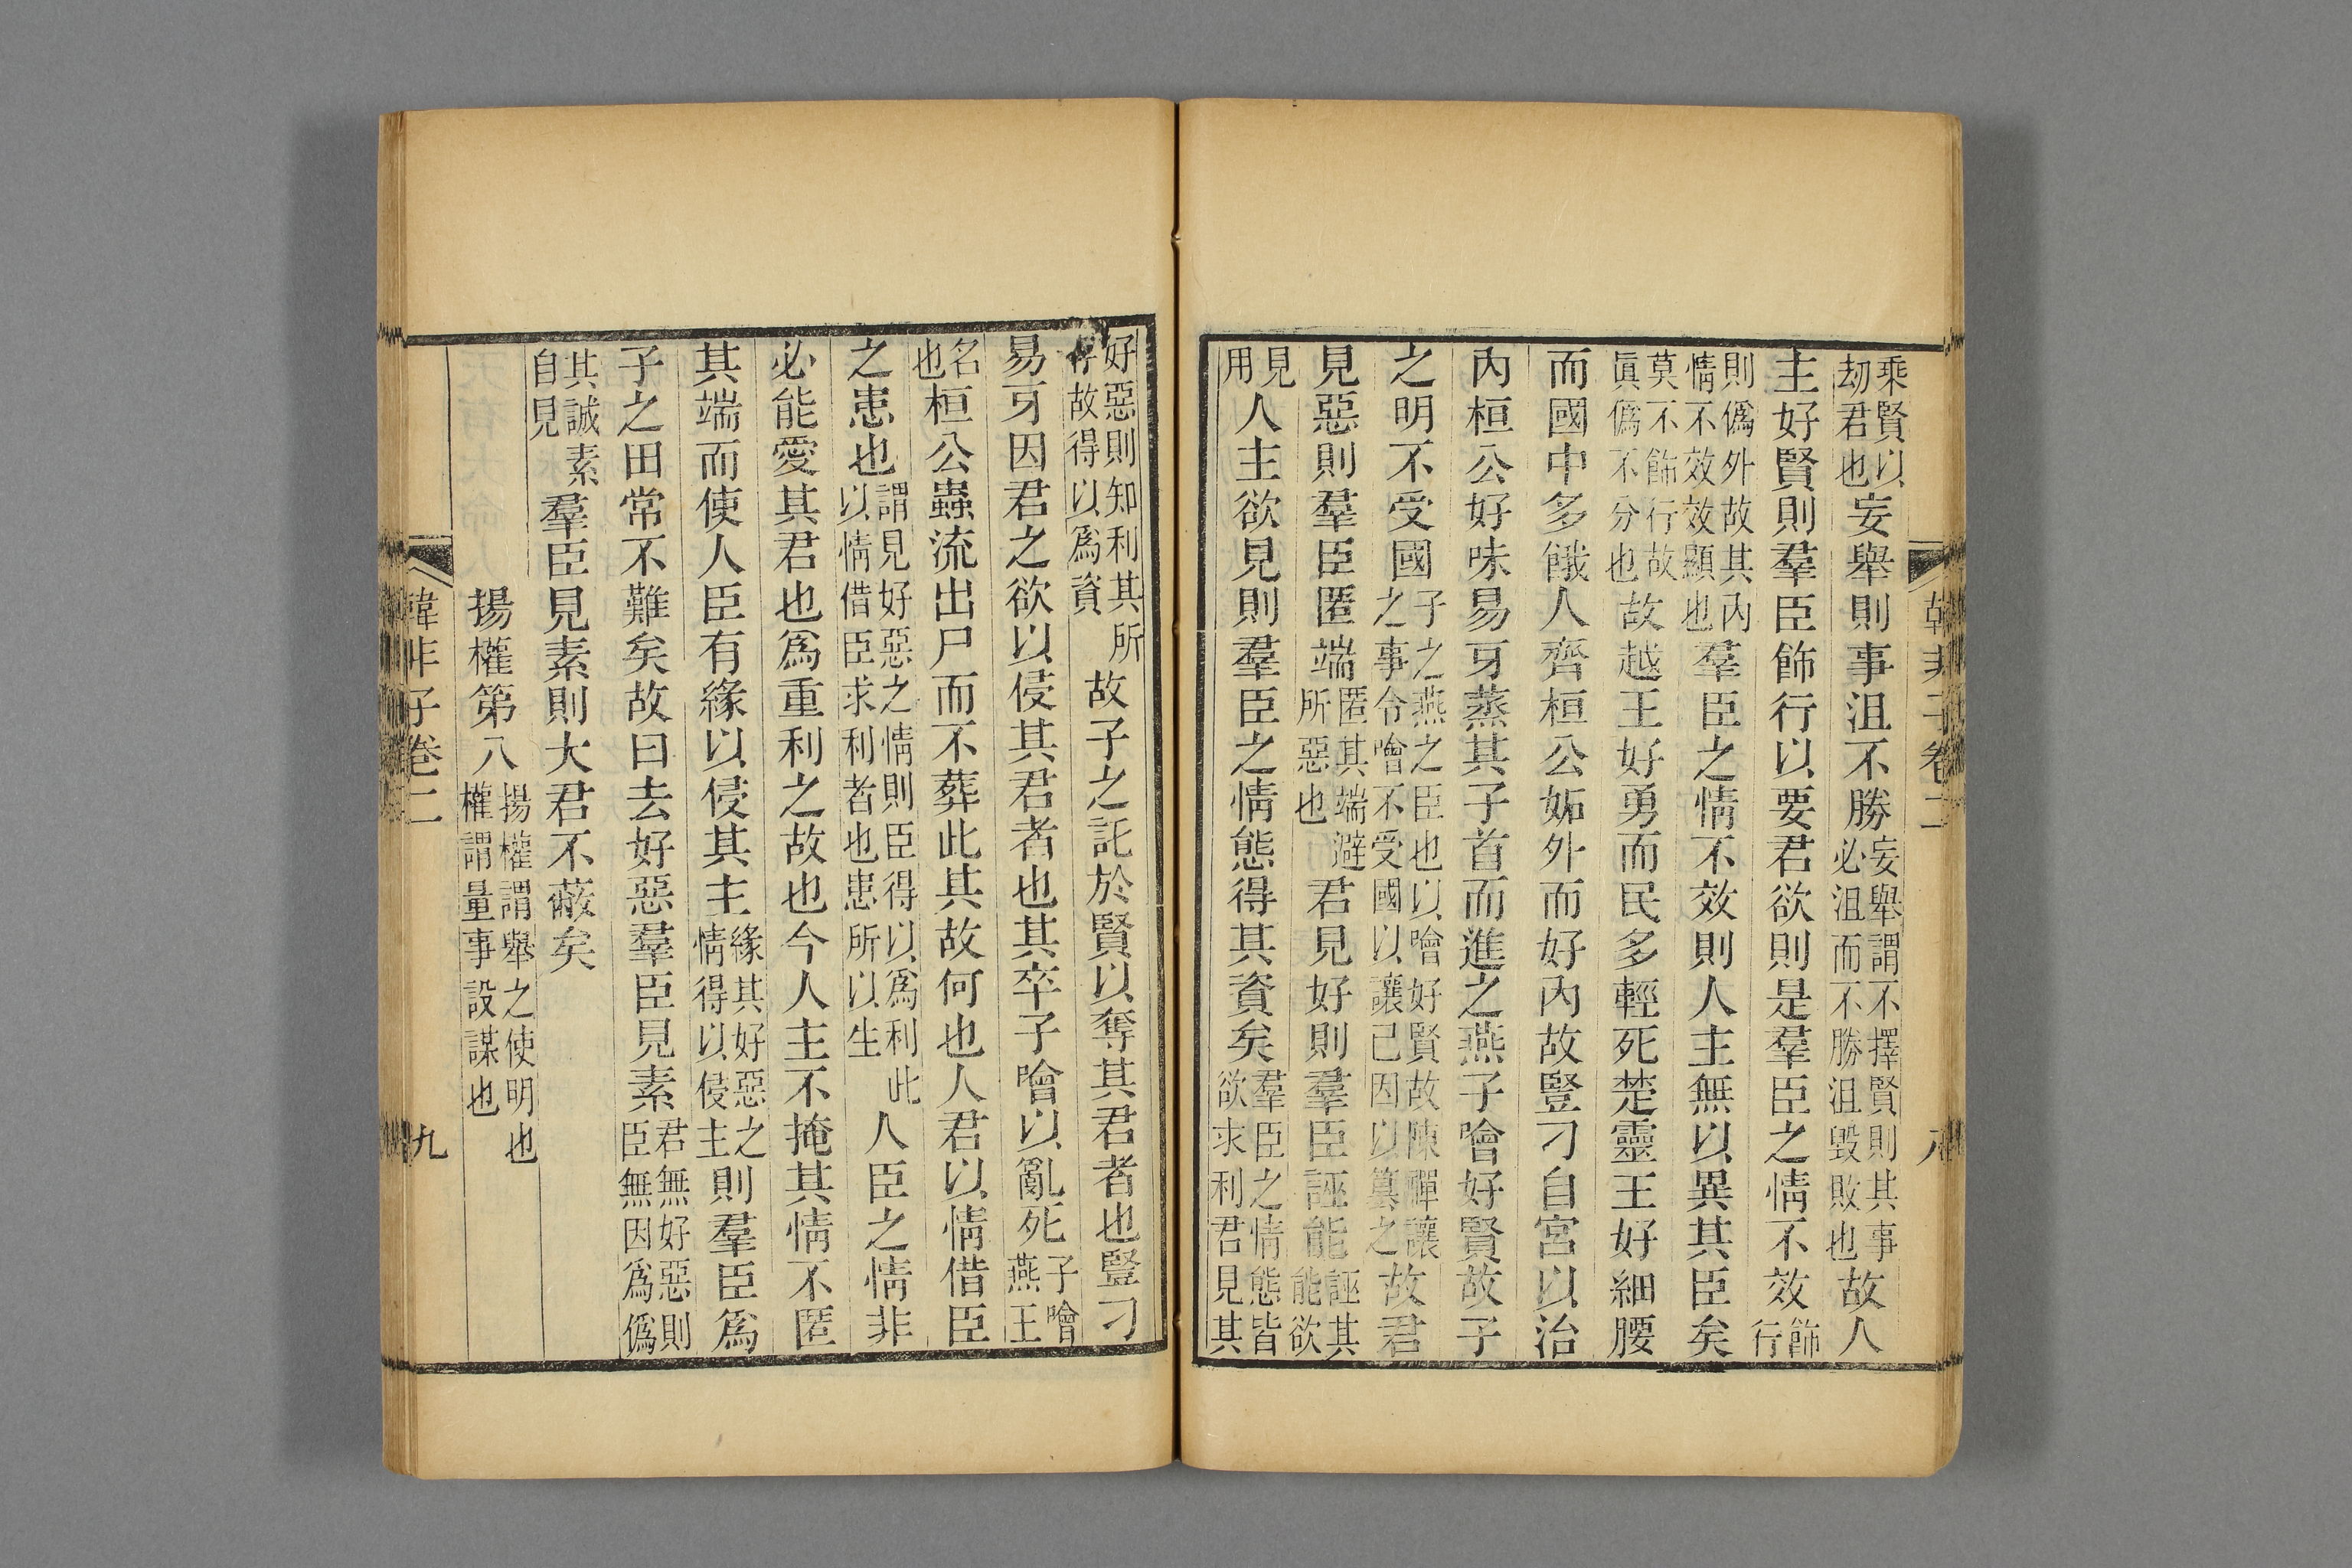 韓非子卷二
八
乘賢以劫君也妄舉則事沮不勝妄舉謂不擇賢則其事必沮而不勝沮毀敗也故人
主好賢則羣臣飾行以要君欲則是羣臣之情不效飾行
則僞外故其內情不效效顯也羣臣之情不效則人主無以異其臣矣
莫不飾行故眞僞不分也故越王好勇而民多輕死楚靈王好細腰
而國中多餓人齊桓公妬外而好內故豎刁自宮以治
內桓公好味易牙蒸其子首而進之燕子噲好賢故子
之明不受國子之燕之臣也以噲好賢故陳禪讓之事令噲不受國以讓已因以篡之故君
見惡則羣臣匿端匿其端避所惡也君見好則羣臣誣能誣其能欲
見用人主欲見則羣臣之情態得其資矣羣臣之情態皆欲求利君見其
好惡則知利其所存故得以爲資故子之託於賢以奪其君者也豎刁
易牙因君之欲以侵其君者也其卒子噲以亂死子噲燕王
名也桓公蟲流出尸而不葬此其故何也人君以情借臣
之患也謂見好惡之情則臣得以爲利此以情借臣求利者也患所以生人臣之情非
必能愛其君也爲重利之故也今人主不掩其情不匿
其端而使人臣有緣以侵其主緣其好惡之情得以侵主則羣臣爲
子之田常不難矣故曰去好惡羣臣見素君無好惡則臣無因爲僞
其誠素自見羣臣見素則大君不蔽矣
揚權第八揚權謂舉之使明也權謂量事設謀也
韓非子卷二
九